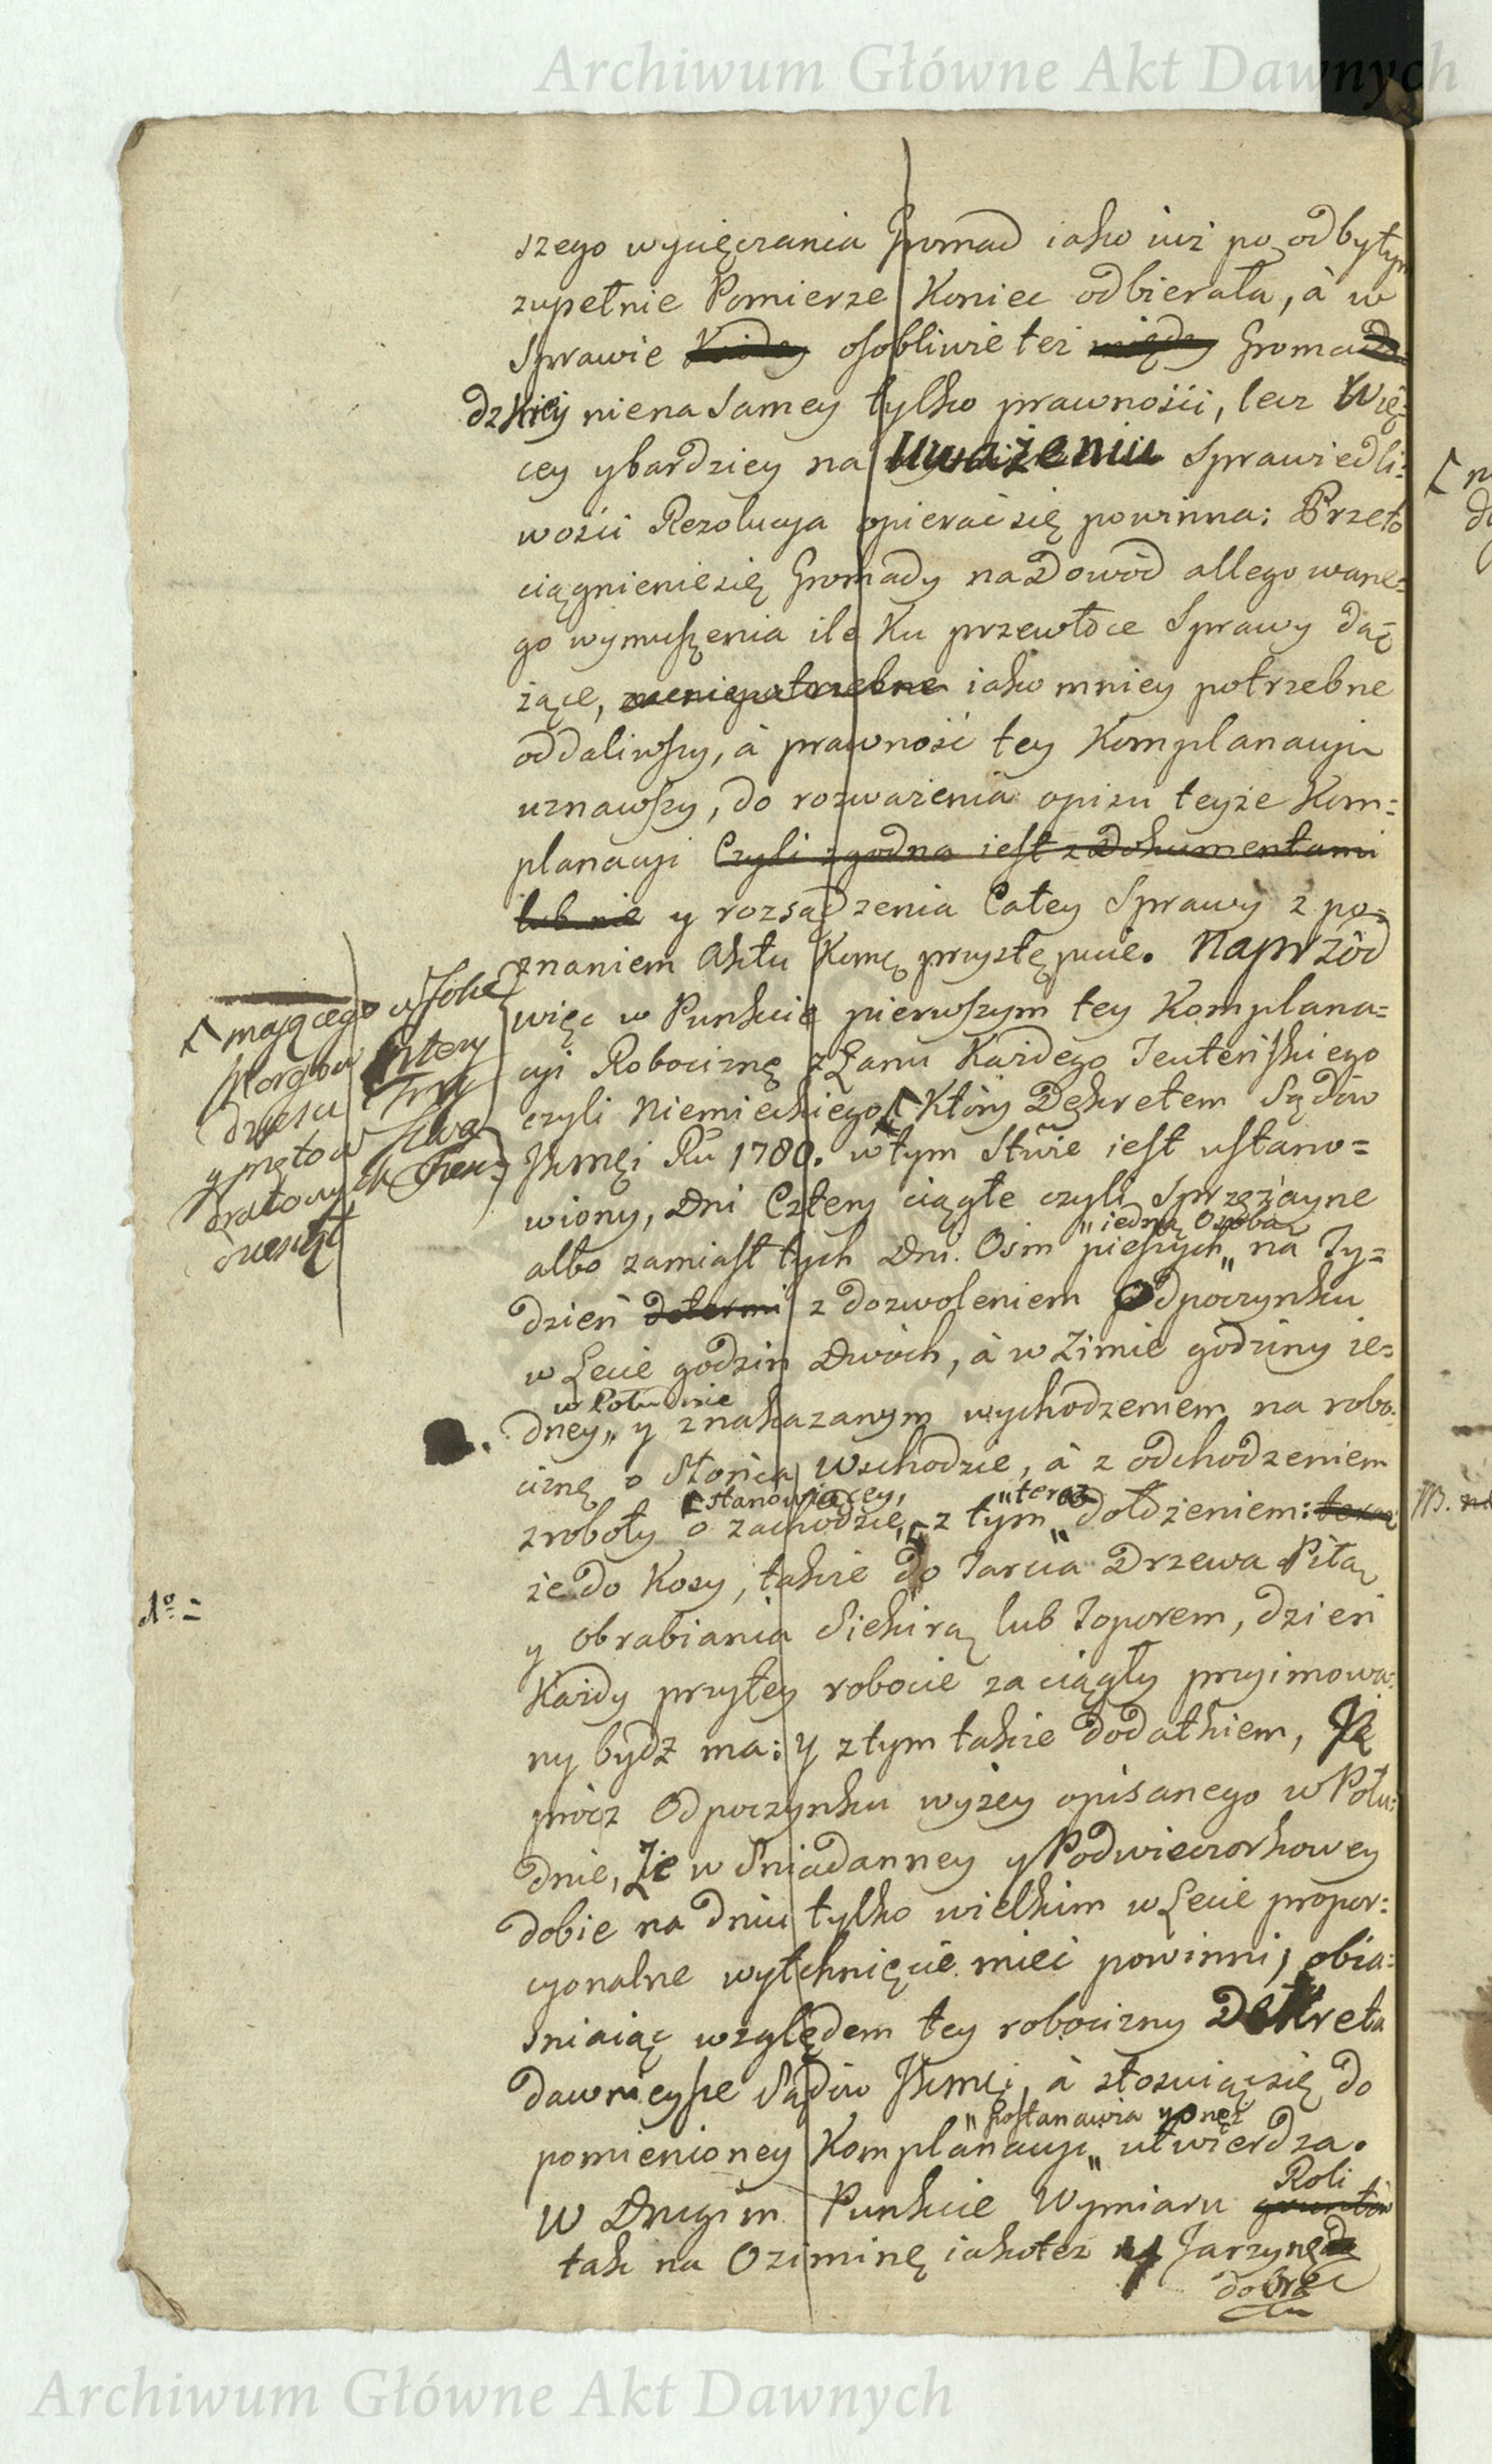 Archiwum Główne Akt Dawnych
szego wycięczania Gromad iako iuż po odbytym
zupełnie Pomierze Koniec odbierała, à w
Sprawie każdey osobliwie też między Groma
dzkiey nie na Samey tylko prawności, lecz Wię-
cey y bardziey na Uważeniu Sprawiedli-
wości Rezolucya opierać się powinna: Przeto
ciągnienie się Gromady na Dowód allegowane-
go wymuszenia ile Ku przewłoce Sprawy dą-
żące, za niepotrzebne iako mniey potrzebne
oddaliwszy, à prawność tey Komplanacyi
uznawszy, do rozważenia opisu teyże Kom-
planacyi Czyli zgodna iest z Dokumentami
lub nie y rozsądzenia Całey Sprawy z po-
znaniem Aktu Komę przystępuie. Naprzód
więc w Punkcie pierwszym tey Komplana=
cyi Robociznę z Łanu Każdego Teuteńskiego
czyli Niemieckiego Który Dekretem Sądów
JKmęi Ru 1780. w tym Stwie iest ustano=
wiony, Dni Cztery ciągłe czyli Sprzężayne
"iedną Osobą
albo zamiast tych Dni Osm pieszych" na Ty=
dzień determi z dozwoleniem Odpoczynku
w Lecie godzin Dwóch, à w Zimie godziny ie=
w Południe
dney" y z nakazanym wychodzeniem na robo-
ciznę o Słońca Wschodzie, à z odchodzeniem
stanowiącey, "teraz
z roboty o zachodzie, z tym dołożeniem: teraz
że do Kosy, także do Tarcia Drzewa Piłą
y Obrabiania Siekirą lub Toporem, dzień
Każdy przy tey robocie za ciągły przyimowa-
ny bydź ma: y z tym także dodatkiem,
prócz Odpoczynku wyżey opisanego w Połu-
dnie, Że w Sniadanney y Podwieczorkowey
dobie na dniu tylko wielkim w Lecie propor-
cyonalne wytchnięcie mieć powinni, obia-
sniaiąc względem tey robocizny Dekreta
dawnieysze Sądów JKmęi, à stosuiąc się do
"Postanawia y onęż
pomienioney Komplanacyi" utwierdza.
W Drugim Punkcie Wymiaru gruntów
Roli
tak na Oziminę iako też y Jarzynę
dobrze
maiącego w Sobie
Morgów Cztery
dziestu Trzy
y prętów Kwa
dratowych Trzy
dziesiąt
1º =
Archiwum Główne Akt Dawnych